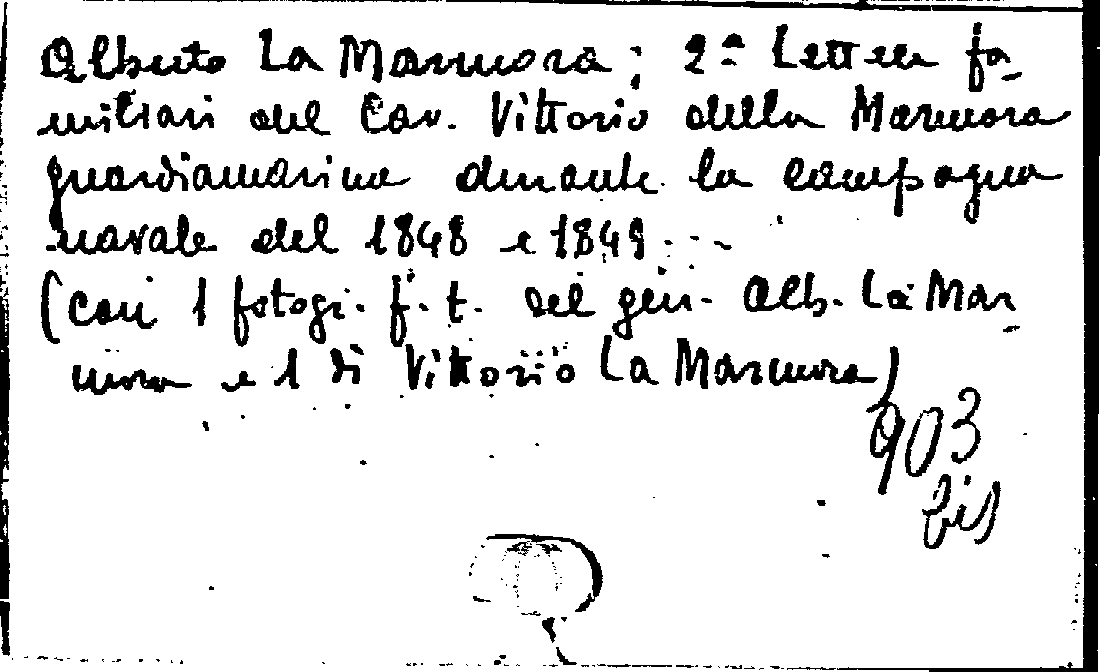 Alberto La Marmora; 2ª Lettere fa-
miliari del Cav. Vittorio della Marmora
guardiamarina durante la campagna
navale del 1848 e 1849. --
(con 1 fotogr. f. t. del gen. Alb. La Mar-
mora e 1 di Vittorio La Marmora)
903
bis